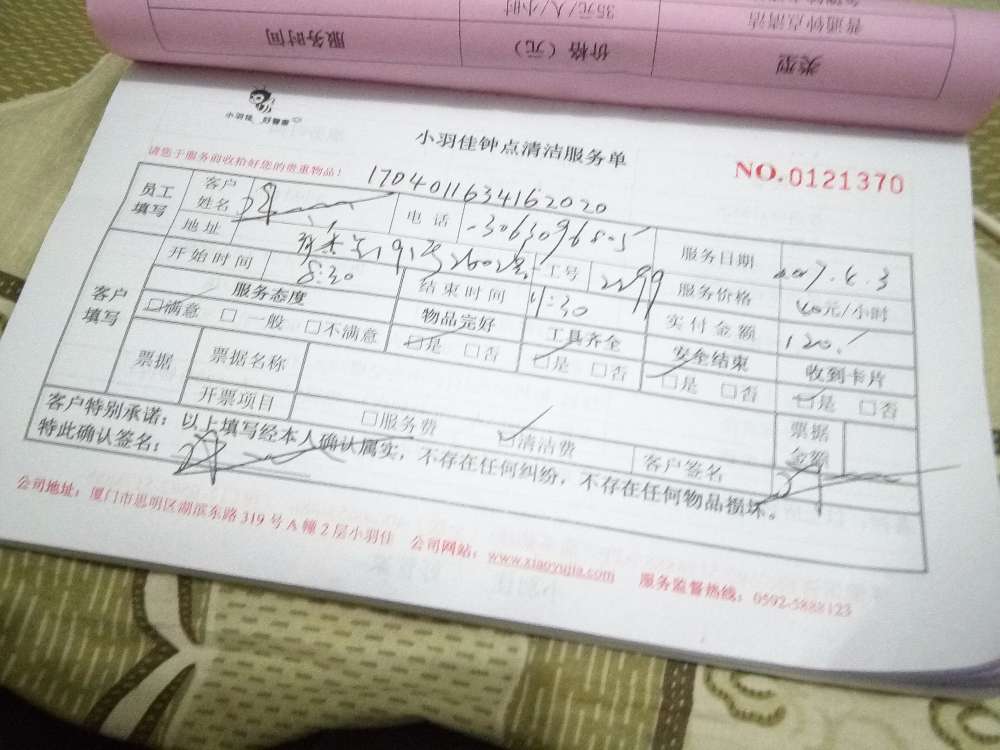 普通钟点清洁 35元/人/小时
类型 价格（元） 服务时间
小羽佳 好管家
小羽佳钟点清洁服务单
请您于服务前收拾好您的贵重物品！
NO.0121370
1704011634162020
员工填写 客户姓名 电话 服务日期
地址 工号 2299 服务价格 40元/小时
开始时间 8:30 结束时间 11:30 实付金额 120.
客户填写 服务态度 物品完好 工具齐全 安全结束 收到卡片
□满意 □一般 □不满意 □是 □否 □是 □否 □是 □否 □是 □否
票据 票据名称 票据金额
开票项目 □服务费 □清洁费 客户签名
客户特别承诺：以上填写经本人确认属实，不存在任何纠纷，不存在任何物品损坏。
特此确认签名：
公司地址：厦门市思明区湖滨东路319号A幢2层小羽佳 公司网站：www.xiaoyujia.com 服务监督热线：0592-5888123